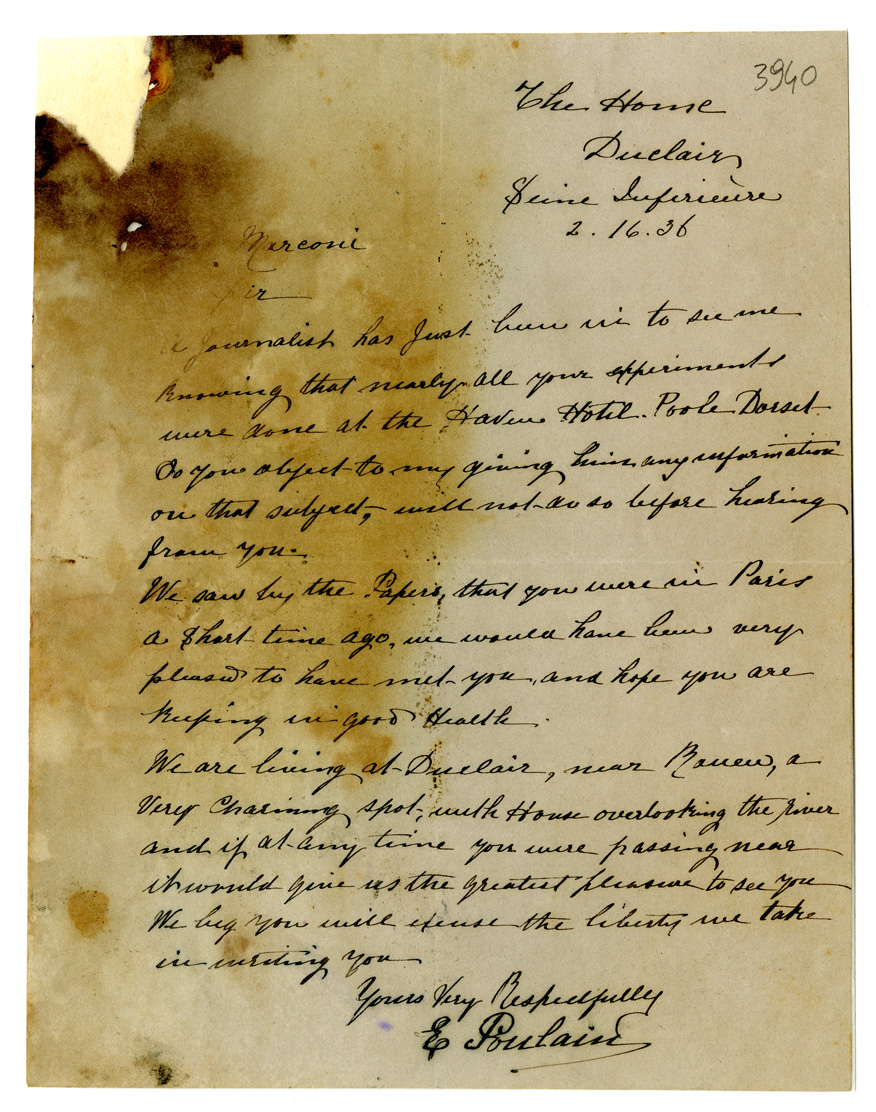 3940
The Home
Duclair
Seine Inferieure
2.16.36
Marconi
Sir
a Journalist has Just been in to see me
Knowing that nearly all your experiments
were done at the Haven Hotel. Poole Dorset
Do you object to my giving him any information
on that subject, will not do so before hearing
from you.
We saw by the Papers, that you were in Paris
a Short time ago, we would have been very
pleased to have met you, and hope you are
keeping in good Health.
We are living at Duclair, near Rouen, a
Very Charming spot, with House overlooking the river
and if at any time you were passing near
it would give us the greatest pleasure to see you
We beg you will excuse the liberty we take
in writing you
Yours Very Respectfully
E Poulain